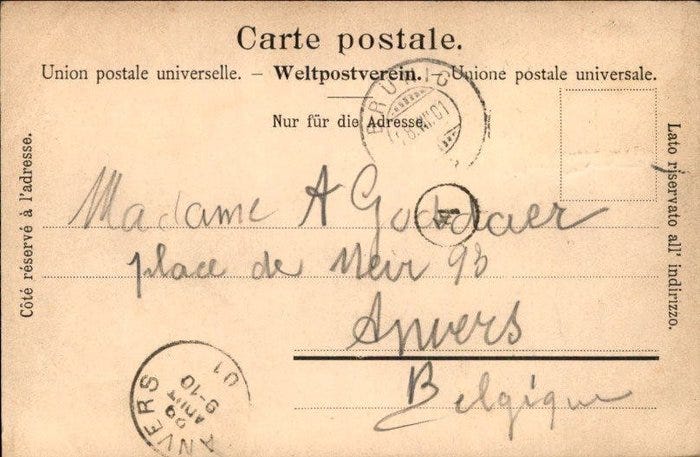 Carte postale.
Union postale universelle. – Weltpostverein. – Unione postale universale.
Nur für die Adresse.
Côté réservé à l'adresse.
Lato riservato all' indirizzo.
BRUNIG
01
Madame A Goddaer
place de Meir 93
Anvers
Belgique
ANVERS
AOUT
9-10
01